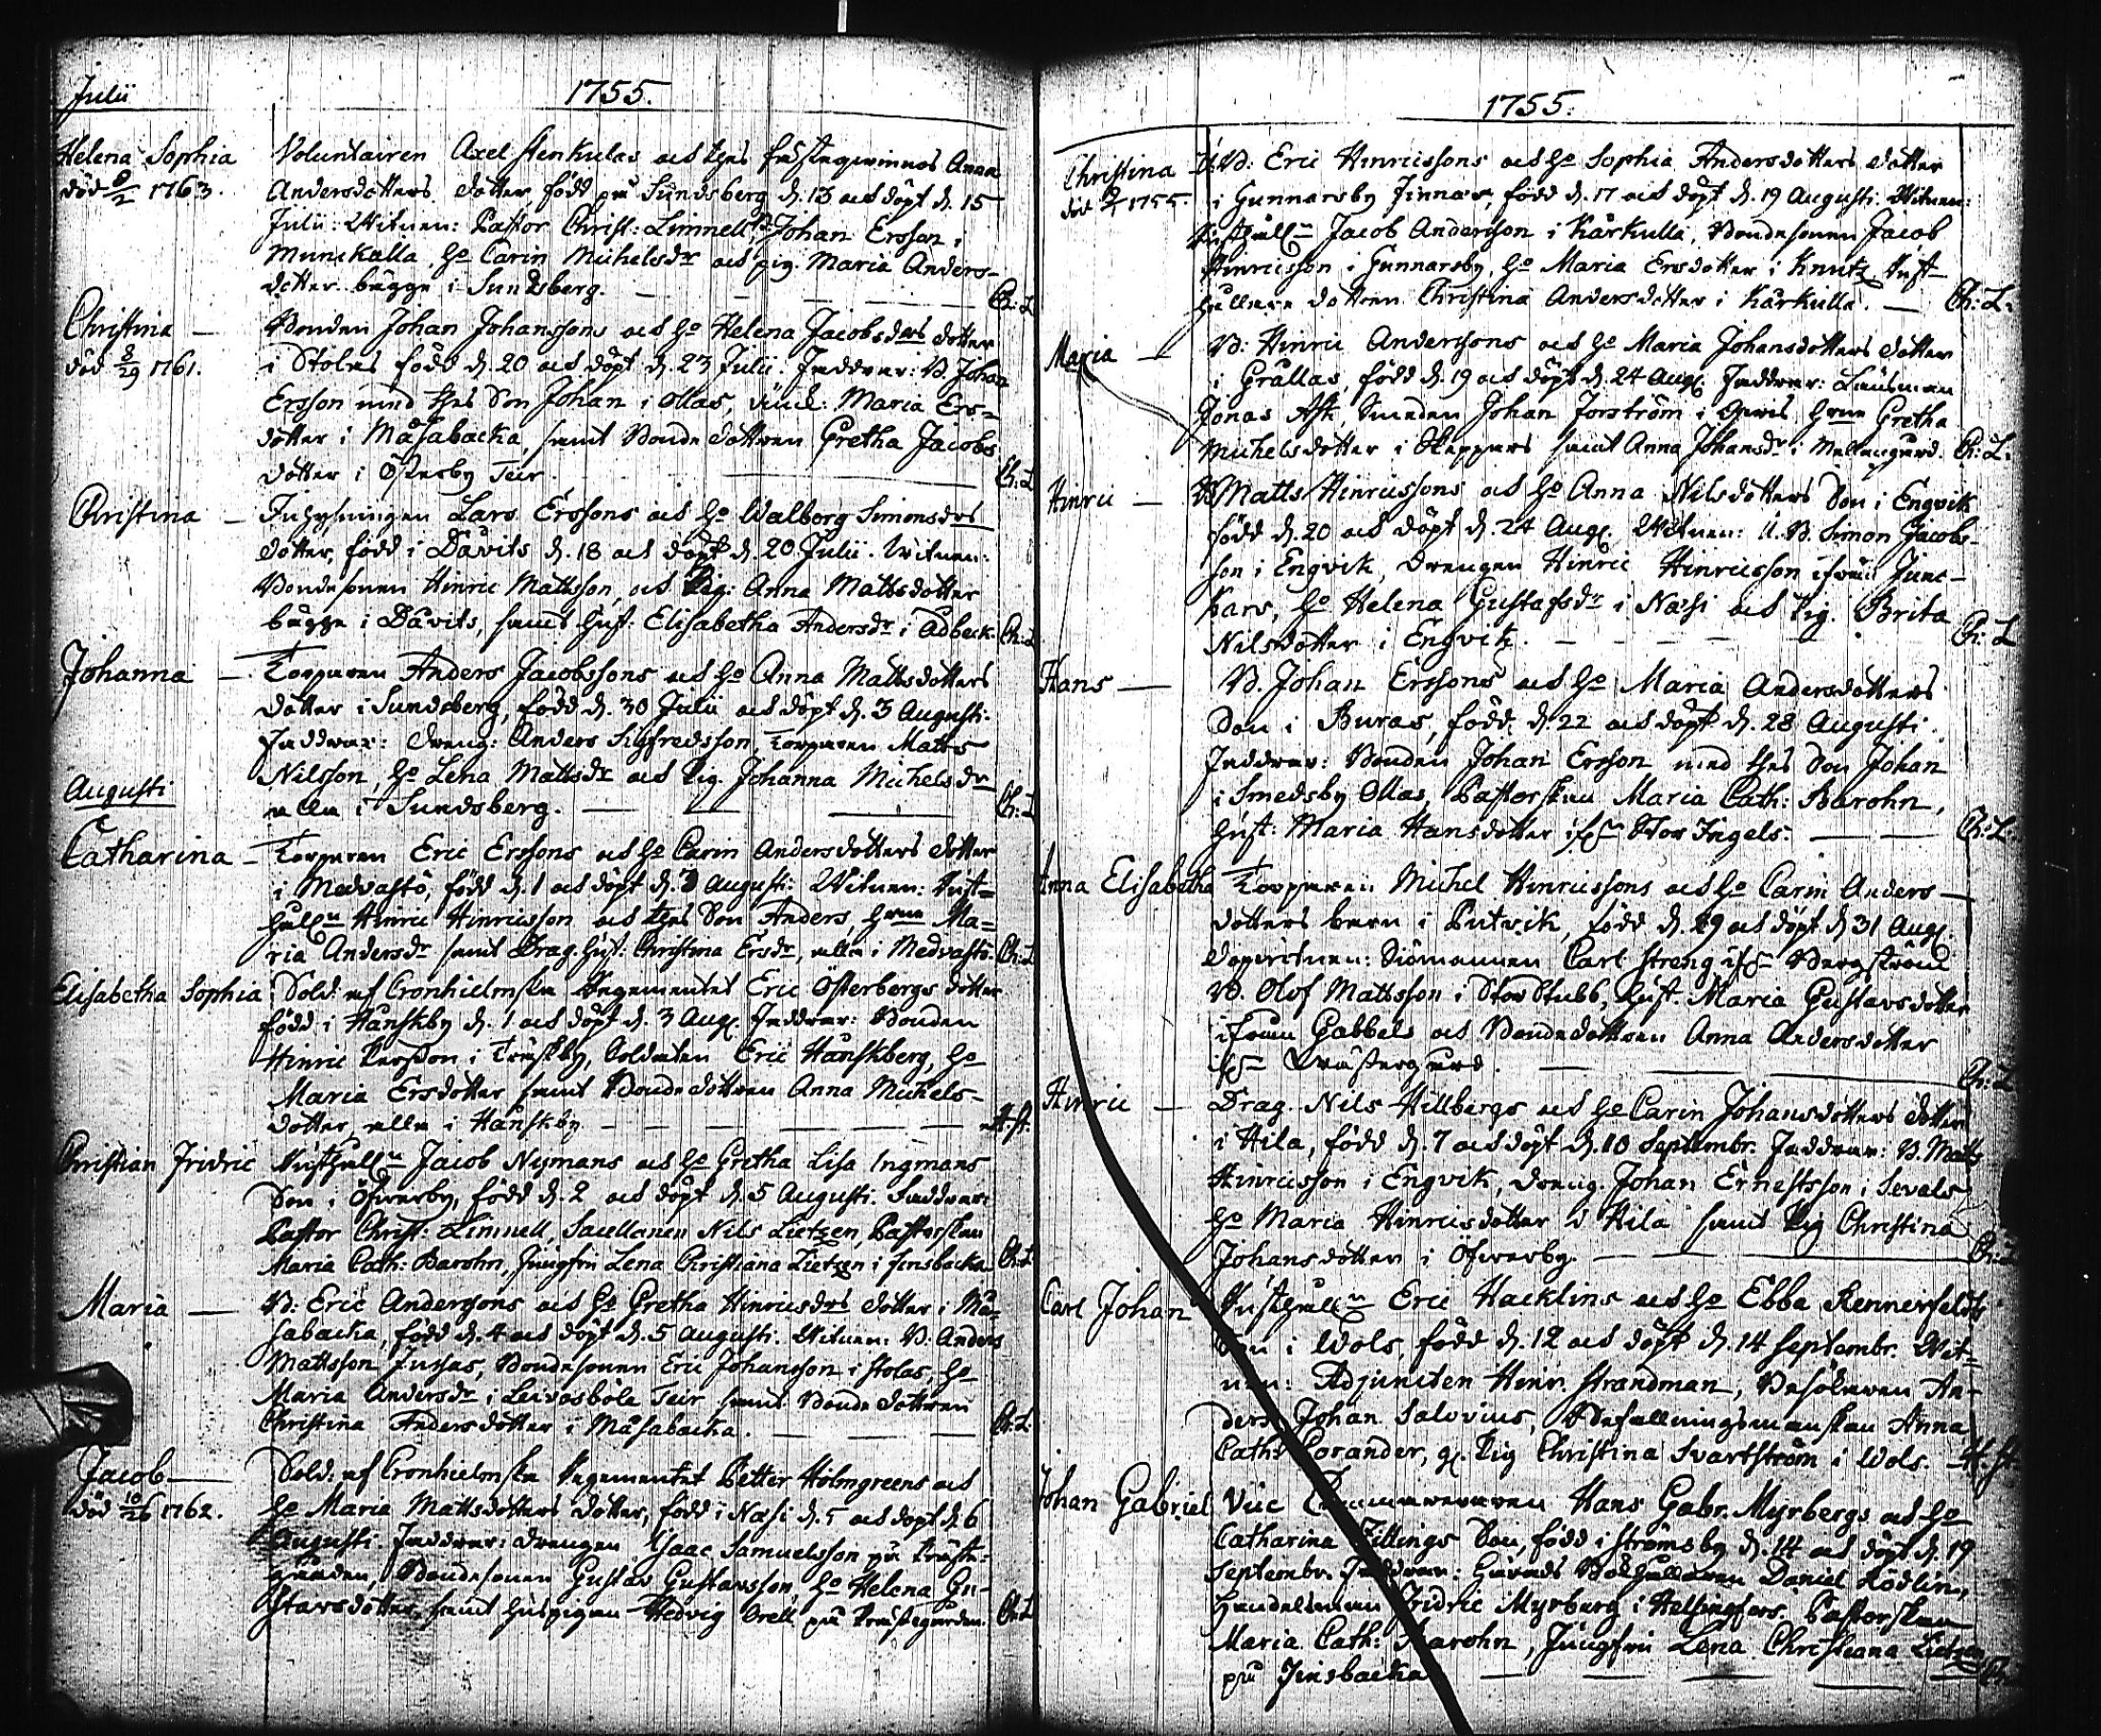 Julii
1755.
Helena Sophia
död 8/2 1763.
Voluntairen Axel Stenkulas och thes Anna
Andersdotters dotter, född på Sundsberg d. 13 och döpt d. 15
Julii. Witnen: Pastor Christ: Limnell, Johan Ersson i
Munckulla, H:o Carin Michelsdr och pig. Maria Anders-
dotter bägge i Sundsberg. Ch: L
Christina —
död 8/29 1761.
Bonden Johan Johanssons och H:o Helena Jacobsdrs dotter
i Stolas född d. 20 och döpt d. 23 Julii. Faddrar: B. Johan
Ersson med thes Son Johan i Ollas, Maria Ers-
dotter i Måsabacka, samt Bonde dottren Gretha Jacobs
dotter i Österby Teir. Ch: L
Christina —
Inhysningen Lars Erssons och H:o Walborg Simonsdrs
dotter, född i Davits d. 18 och döpt d. 20 Julii. Witnen:
Bondesonen Hinric Mattsson, och Pig: Anna Mattsdotter
bägge i Davits, samt Hust: Elisabetha Andersdr i Adbeck. Ch: L
Johanna —
Torparen Anders Jacobssons och H:o Anna Mattsdotters
dotter i Sundsberg, född d. 30 Julii och döpt d. 3 Augusti.
Faddrar: dreng: Anders Sigfredsson, Torparen Matts
Nilsson, H:o Lena Mattsdr och Pig. Johanna Michelsdr
alla i Sundsberg. Ch: L
Augusti
Catharina —
Torparen Eric Erssons och H:o Carin Andersdotters dotter
i Medvastö, född d. 1 och döpt d. 3 Augusti. Witnen: Rust-
håll:n Hinric Hinricsson och thes Son Anders, H:run Ma-
ria Andersdr samt Drag. Hust: Christina Ersdr, alla i Medvastö. Ch: L
Elisabetha Sophia
Sold: af Cronhielmska Regementet Eric Österbergs dotter
född i Hanskby d. 1 och döpt d. 3 Aug. Faddrar: Bonden
Hinric Persson i Träskby, Soldaten Eric Hanskberg, H:o
Maria Ersdotter samt Bondedottren Anna Michels-
dotter, alla i Hanskby — H. St.
Christian Fridric
Rusthåll:n Jacob Nymans och H:o Gretha Lisa Ingmans
Son i Öfwerby, född d. 2 och döpt d. 5 Augusti. Faddrar:
Pastor Christ: Limnell, Sacellanen Nils Lietzen, Pastorskan
Maria Cath: Barohn, Jungfru Lena Christiana Lietzen i Jinsbacka Ch: L
Maria —
B: Eric Anderssons och H:o Gretha Hinricsdrs dotter i Må-
sabacka, född d. 4 och döpt d. 5 Augusti. Witnen: B. Anders
Mattsson Jussas, Bondesonen Eric Johansson i Stolas, H:o
Maria Andersdr i Leivosböle Teir samt Bonde dottren
Christina Andersdotter i Måsabacka. Ch: L
Jacob —
död 10/26 1762.
Sold: af Cronhielmska Regementet Petter Holmgreens och
H:o Maria Mattsdotters dotter, född i Næsi d. 5 och döpt d. 6
Augusti. Faddrar: drengen Isaac Samuelsson på Präste-
gården, Bondesonen Gustav Gustavsson, H:o Helena Gu-
stavsdotter, samt Huspigan Hedvig Orell på Prästegården. Ch: L
1755.
Christina
död 1755.
B: Eric Hinricssons och H:o Sophia Andersdotters dotter
i Gunnarsby Finnas, född d. 17 och döpt d. 19 Augusti. Witnen:
Rusthåll:n Jacob Andersson i Karkulla, Bondesonen Jacob
Hinricsson i Gunnarsby, H:o Maria Ersdotter i Knutz, Rust-
hållare dottren Christina Andersdotter i Karkulla. — Ch: L:
Maria —
B: Hinric Anderssons och H:o Maria Johansdotters dotter
i Grållas, född d. 19 och döpt d. 24 Aug. Faddrar: Länsman
Jonas Ask, Smeden Johan Forström i Gerris, H:run Gretha
Michelsdotter i Skeppars samt Anna Johansdr i Mellangård. Ch: L:
Hinric —
B Matts Hinricssons och H:o Anna Nilsdotters Son i Engvik
född d. 20 och döpt d. 24 Aug. Witnen: U. B. Simon Jacobs-
son i Engvik, Drengen Hinric Hinricsson ifrån Junc-
kars, H:o Helena Gustafsdr i Næsi och Pig. Brita
Nilsdotter i Engvik. Ch: L
Hans —
B. Johan Erssons och H:o Maria Andersdotters
Son i Buras, född d. 22 och döpt d. 28 Augusti.
Faddrar: Bonden Johan Ersson med thes Son Johan
i Smedsby Ollas, Pastorskan Maria Cath: Barohn,
Hust: Maria Hansdotter ifr:n Stor Ingels. — Ch: L:
Anna Elisabetha
Torparen Michel Hinricssons och H:o Carin Anders-
dotters barn i Butvik, född d. 29 och döpt d 31 Aug.
Dopwitnen: Siömannen Carl Streng ifr:n Bergström
B. Olof Mattsson i Stor Stubb, Hust. Maria Gustavsdotter
ifrån Gabbels och Bondedottren Anna Andersdotter
ifr:n Prästergård. Ch: L
Hinric —
Drag. Nils Hillbergs och H:o Carin Johansdotters dotter
i Hila, född d. 7 och döpt d. 10 Septembr. Faddrar: B. Matts
Hinricsson i Engvik, dreng. Johan Ernestsson i Sevals
H:o Maria Hinricsdotter i Hila samt Pig Christina
Johansdotter i Öfwerby. Ch: L
Carl Johan
Rusthåll:n Eric Hacklins och H:o Ebba Rennerfeldts
Son i Wols, född d. 12 och döpt d. 14 Septembr. Wit-
nen: Adjuncten Hinr. Strandman, Besökaren An-
ders Johan Salovius, Befallningsmanskan Anna
Cath: Corander, Pig Christina Svartström i Wols. H. St.
Johan Gabriel
Vice Cammereraren Hans Gabr. Myrbergs och H:o
Catharina Fillings Son, född i Strömsby d. 14 och döpt d. 19
Septembr. Faddrar: Gårds Bokhållaren Daniel Rödlin,
Handelsman Fridric Myrberg i Helsingfors, Pastorskan
Maria Cath: Barohn, Jungfru Lena Christiana Lietzen
på Jinsbacka — Ch: